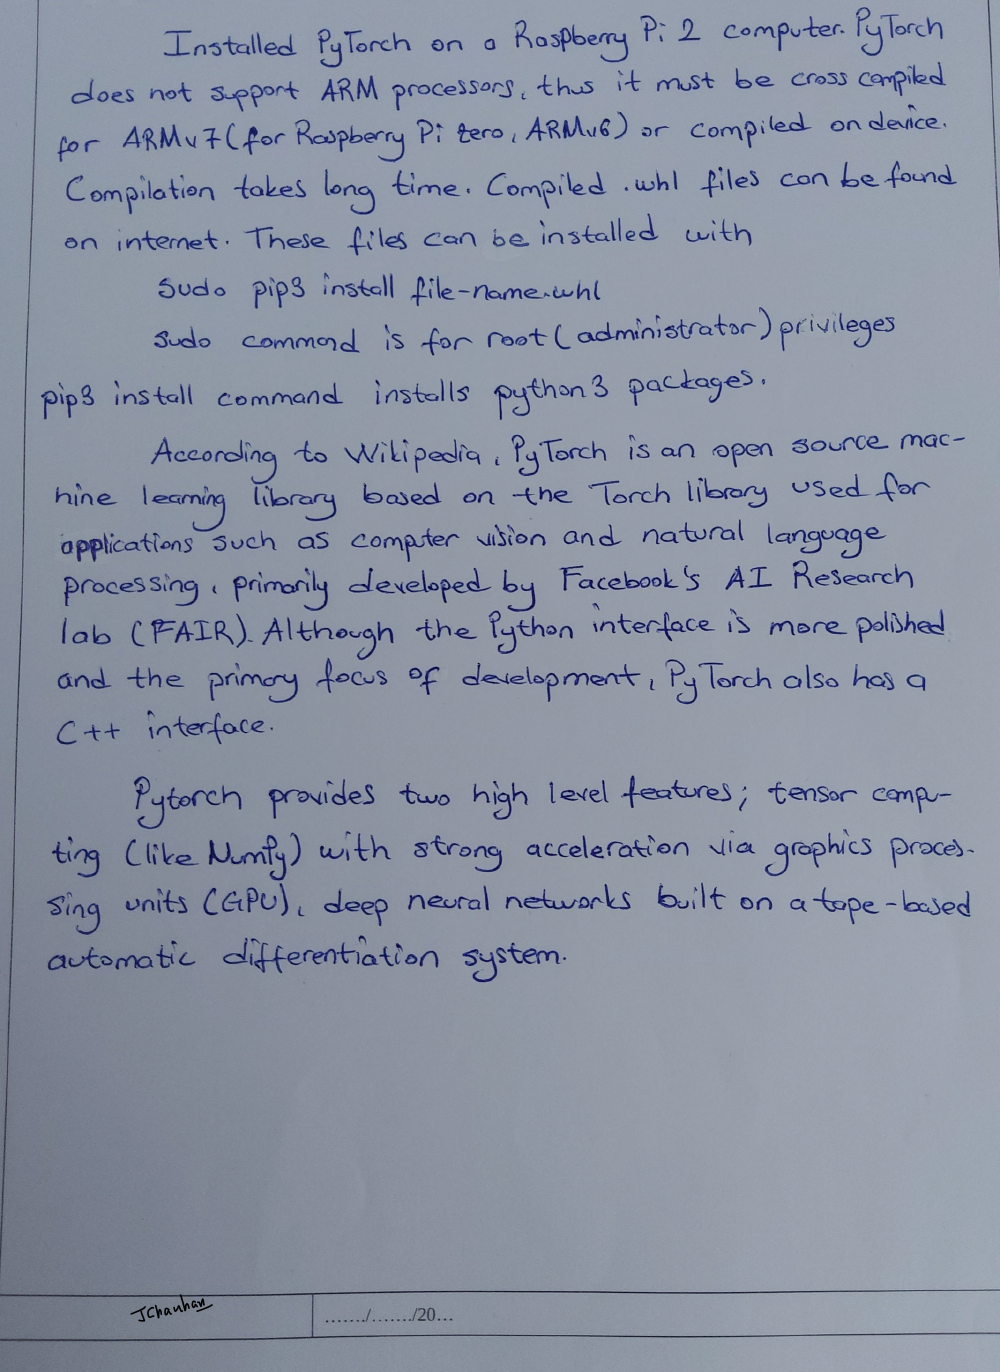 Installed PyTorch on a Raspberry Pi 2 computer. PyTorch
does not support ARM processors, thus it must be cross compiled
for ARMv7 (for Raspberry Pi zero, ARMv6) or compiled on device.
Compilation takes long time. Compiled .whl files can be found
on internet. These files can be installed with
sudo pip3 install file-name.whl
sudo command is for root (administrator) privileges
pip3 install command installs python3 packages.
According to Wikipedia, PyTorch is an open source mac-
hine learning library based on the Torch library used for
applications such as computer vision and natural language
processing, primarily developed by Facebook's AI Research
lab (FAIR). Although the Python interface is more polished
and the primary focus of development, PyTorch also has a
C++ interface.
Pytorch provides two high level features; tensor compu-
ting (like NumPy) with strong acceleration via graphics proces-
sing units (GPU), deep neural networks built on a tape-based
automatic differentiation system.
JChauhan
......./......../20...